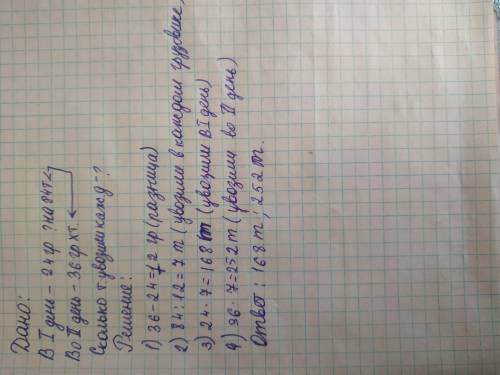 Дано:
В I день – 24 гр ? на 84т <
Во II день – 36 гр х т.
Сколько т увозили кажд – ?
Решение:
1) 36-24=12 гр (разница)
2) 84:12=7т (увозили в каждом грузовике)
3) 24·7=168т (увозили в I день)
4) 36·7=252т (увозили во II день)
Ответ: 168т; 252т.